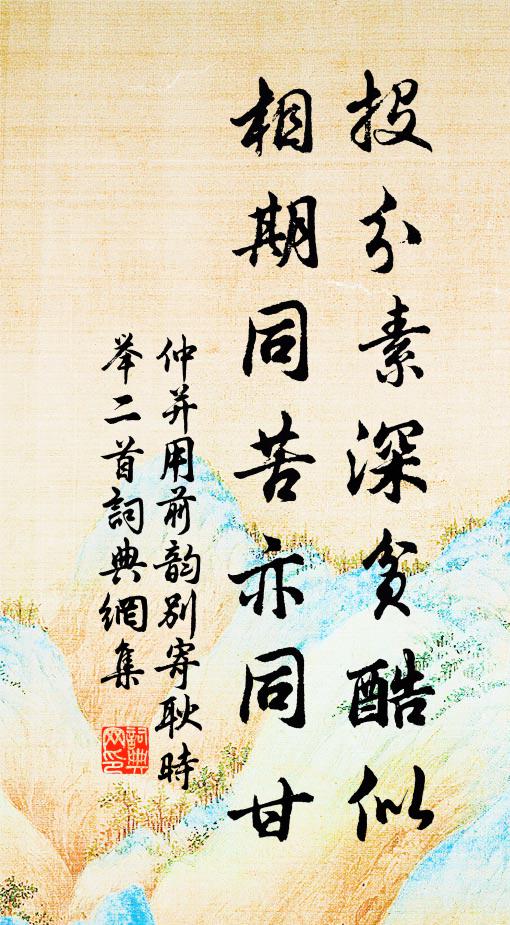 投分素深贫酷似
相期同苦亦同甘
仲并用前韵别寄耿時
举二首詞典網集
詞典网印